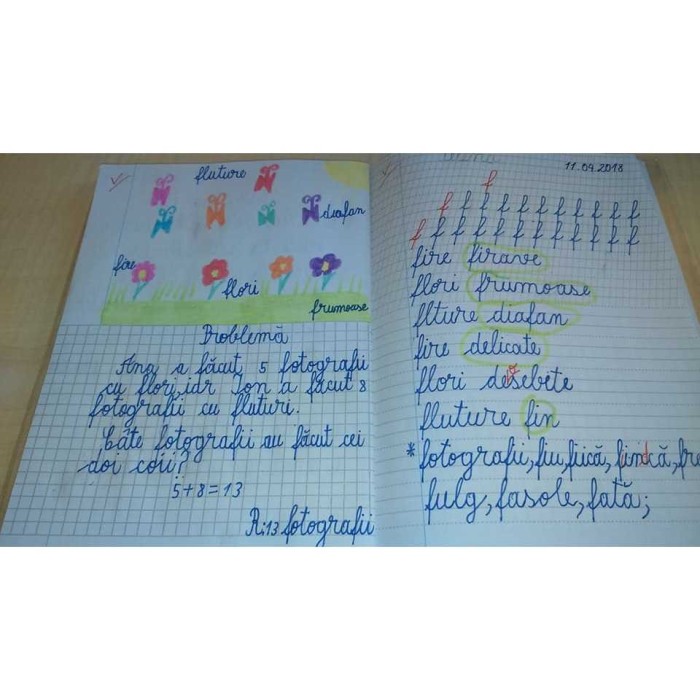 fluture
diafan
fire
flori
frumoase
Problemă
Ana a făcut 5 fotografii
cu flori, iar Ion a făcut 8
fotografii cu fluturi.
Câte fotografii au făcut cei
doi copii?
5+8=13
R:13 fotografii
11.04.2018
f
f f f f f f f f f f f f
f f f f f f f f f f f f f
fire firave
flori frumoase
flture diafan
fire delicate
flori deosebete
fluture fin
*fotografii, fiu, fiică, fiindcă,
fulg, fasole, fată;